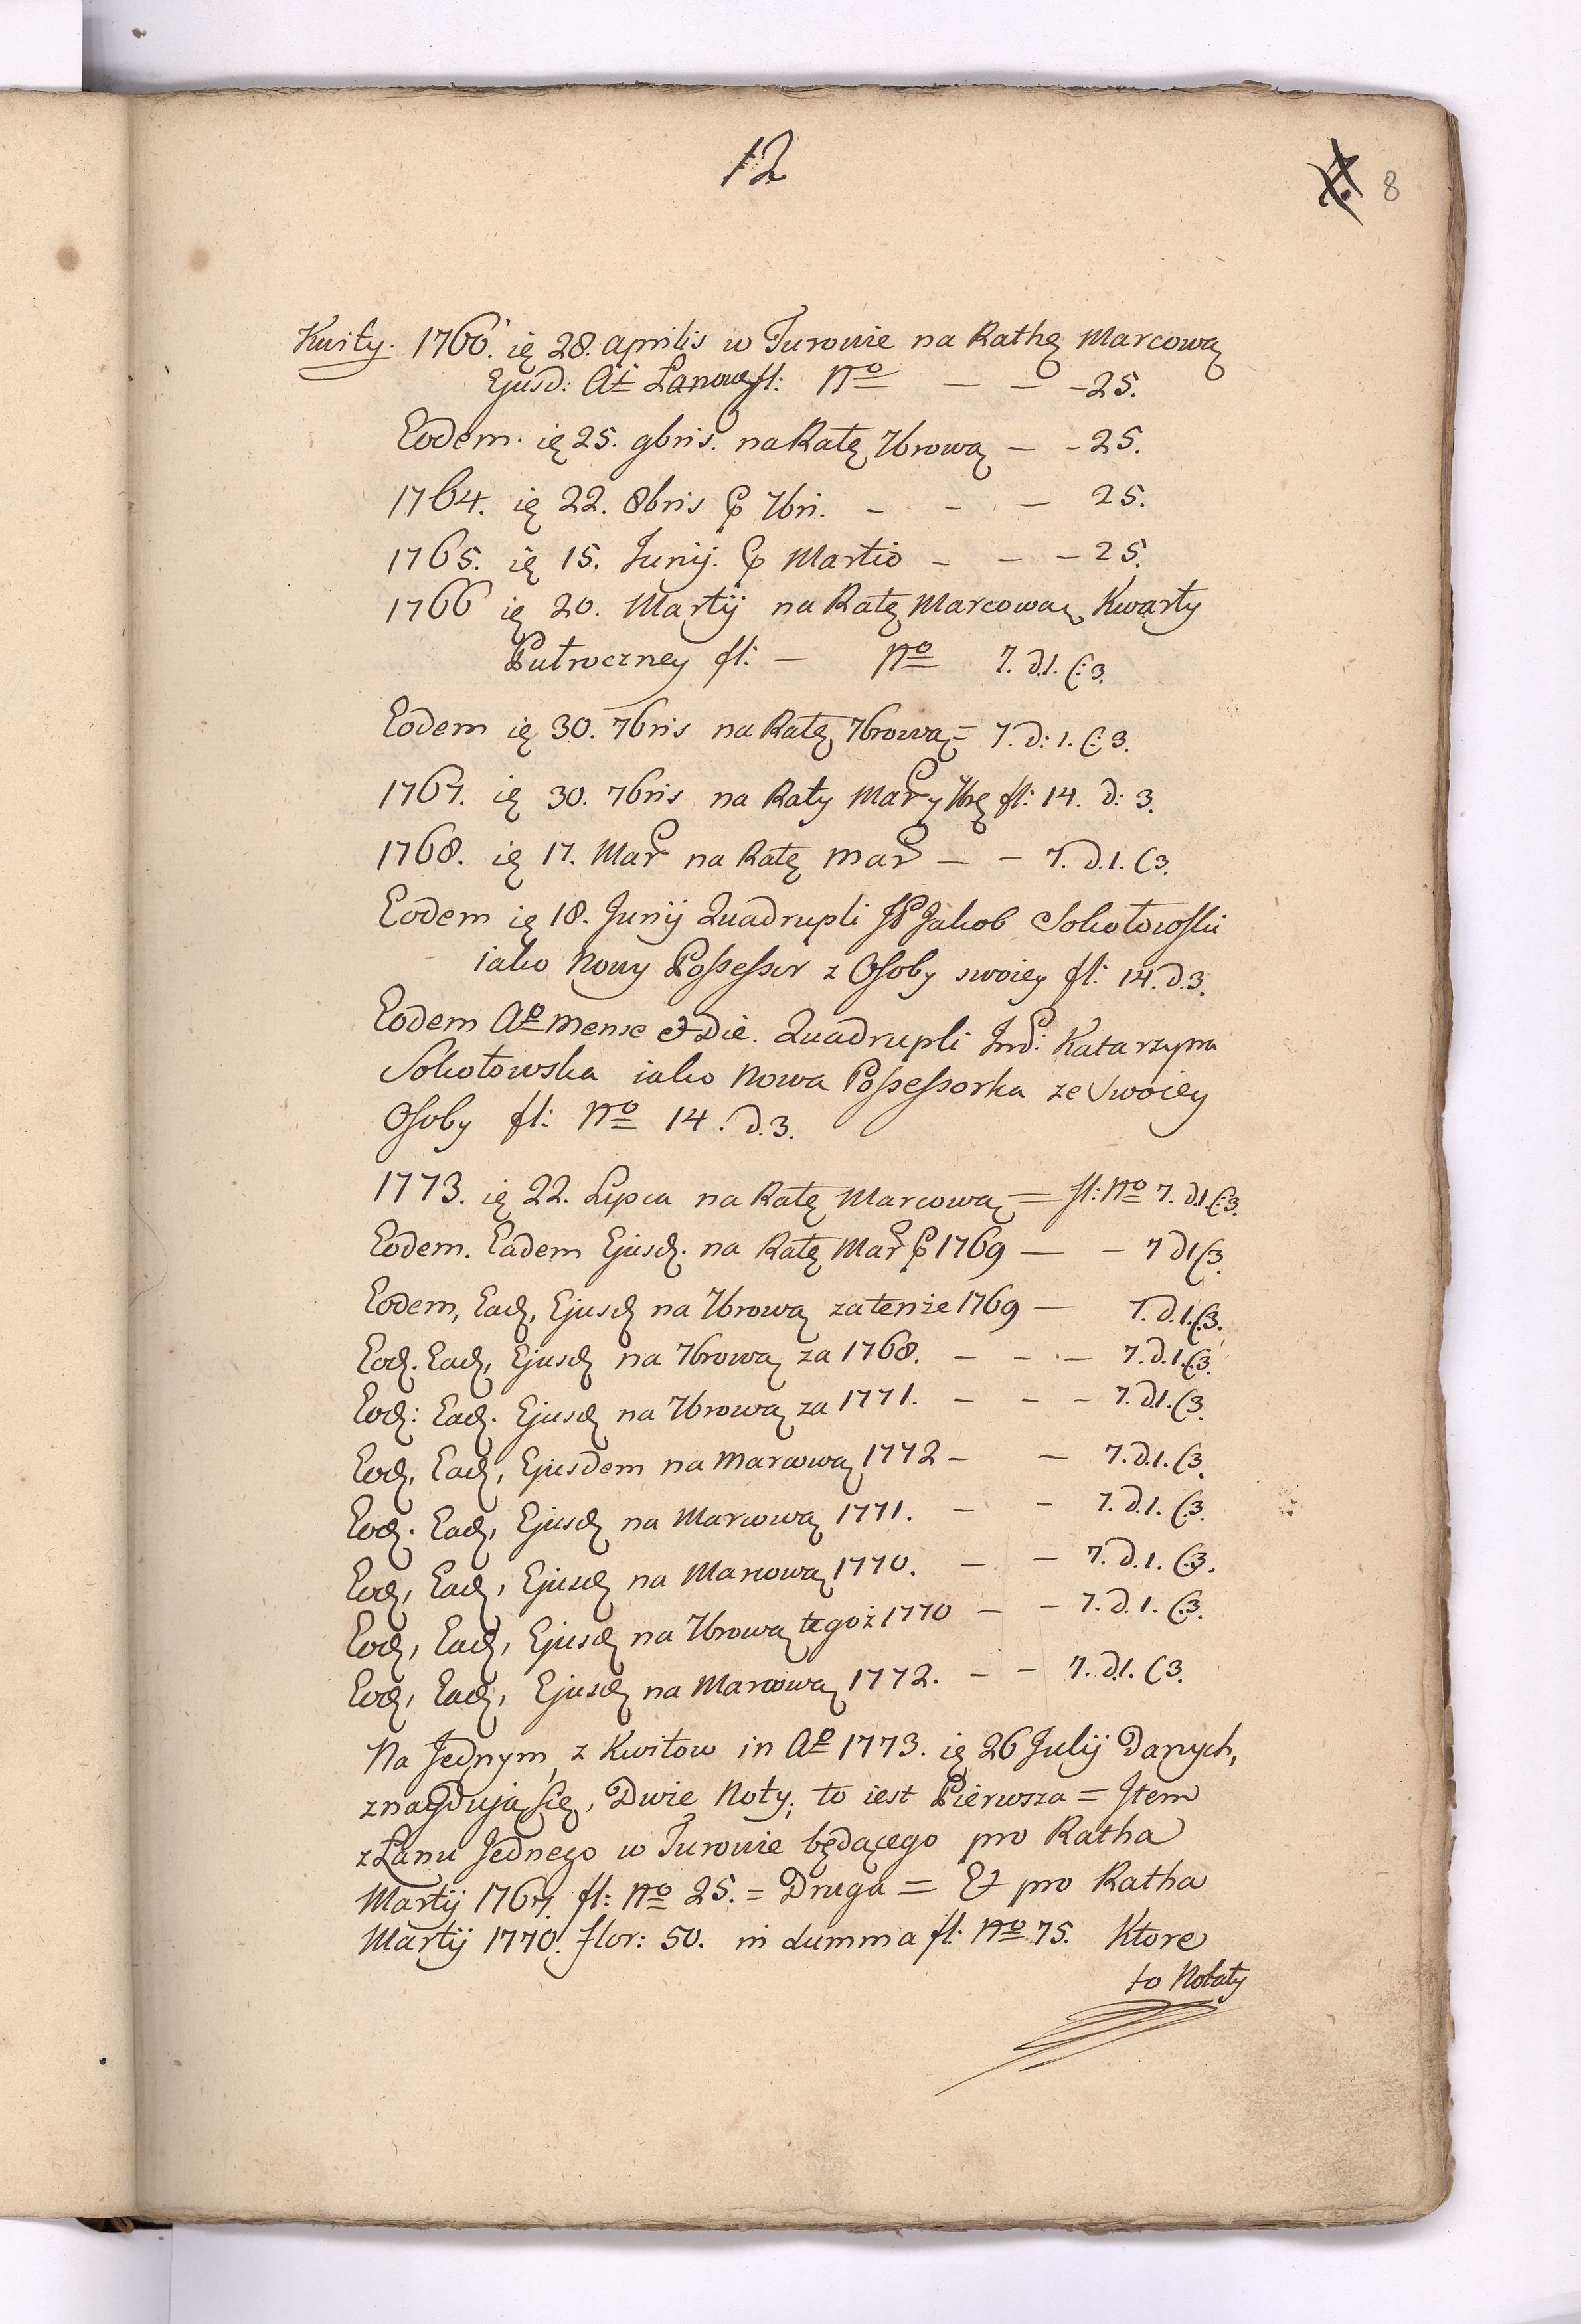 12
8
Kwity. 1766. ię 28. aprilis w Turowie na Rathę Marcową
Ejusd: Ai Łanowe fl: No — — — 25.
Eodem. ię 25. 9bris. na Ratę 7brową — — 25.
1764. ię 22. 8bris P 7bri. — — — 25.
1765. ię 15. Junij. P Martio — — — 25.
1766 ię 20. Martij na Ratę Marcową Kwarty
Pułroczney fl: — No 7. d.1. (:3.
Eodem ię 30. 7bris na Ratę 7brową = 7. d: 1. (:3.
1767. ię 30. 7bris na Raty Mar y 7brę fl: 14. d: 3.
1768. ię 17. Mar na Ratę mar — — 7. d.1. (3.
Eodem ię 18. Junij Quadrupli JP Jakob Sokołowski
iako Nowy Possessor z Osoby swoiey fl: 14. d.3.
Eodem Ao mense et Die. Quadrupli Jmp: Katarzyna
Sokołowska iako Nowa Possessorka ze Swoiey
Osoby fl: No 14. d.3.
1773. ię 22. Lipca na Ratę Marcową = fl: No 7. d.1 (:3.
Eodem. Eadem Ejusd. na Ratę Mar P 1769 — — 7 d1 (3.
Eodem, Ead, Ejusd na 7brową za tenże 1769 — 7. d.1. (:3.
Eod. Ead, Ejusd na 7brową za 1768. — — — 7. d.1. (:3.
Eod: Ead. Ejusd na 7brową za 1771. — — — 7. d1. (3.
Eod, Ead, Ejusdem na Marcową 1772 — — 7. d.1. (3.
Eod. Ead, Ejusd na Marcową 1771. — — 7. d.1. (3.
Eod, Ead, Ejusd na Marcową 1770. — — 7. d.1. (3.
Eod, Ead, Ejusd na 7brową tegoż 1770 — — 7. d.1. (:3.
Eod, Ead, Ejusd na Marcową 1772. — — 7. d.1. (3.
Na Jednym z Kwitow in Ao 1773. ię 26 Julij Danych,
znaydują się, Dwie Noty; to iest Pierwsza = Item
z Łanu Jednego w Turowie będącego pro Ratha
Martij 1767. fl: No 25. = Druga = Et pro Ratha
Martij 1770. flor: 50. in summa fl: No 75. Ktore
to Notaty